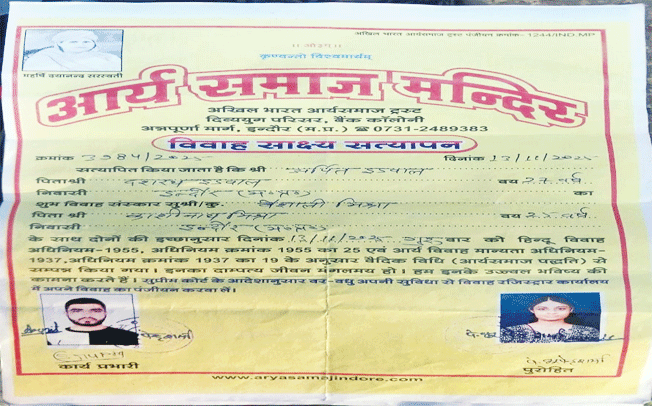 अखिल भारत आर्यसमाज ट्रस्ट पंजीयन क्रमांक- 1244/IND.MP
।। ओ३म् ।।
कृण्वन्तो विश्वमार्यम्
महर्षि दयानन्द सरस्वती
आर्य समाज मन्दिर
अखिल भारत आर्यसमाज ट्रस्ट
दिव्ययुग परिसर, बैंक कॉलोनी
अन्नपूर्णा मार्ग, इन्दौर (म.प्र.) ☎ 0731-2489383
विवाह साक्ष्य सत्यापन
क्रमांक 3984/2025 दिनांक 13/11/2025
सत्यापित किया जाता है कि श्री अर्पित
पिता श्री दशरथ वय 27 वर्ष
निवासी इन्दौर (म.प्र.) का
शुभ विवाह संस्कार सुश्री/कु. वैशाली मिश्रा
पिता श्री काशीनाथ मिश्रा वय वर्ष
निवासी इन्दौर (म.प्र.)
के साथ दोनों की इच्छानुसार दिनांक 13/11/2025 गुरु वार को हिन्दू विवाह
अधिनियम-1955, अधिनियम क्रमांक 1955 का 25 एवं आर्य विवाह मान्यता अधिनियम-
1937, अधिनियम क्रमांक 1937 का 19 के अनुसार वैदिक विधि (आर्यसमाज पद्धति) से
सम्पन्न किया गया। इनका दाम्पत्य जीवन मंगलमय हो। हम इनके उज्वल भविष्य की
कामना करते हैं। सुप्रीम कोर्ट के आदेशानुसार वर-वधु अपनी सुविधा से विवाह रजिस्ट्रार कार्यालय
में अपने विवाह का पंजीयन करवा लें।
कार्य प्रभारी
पुरोहित
www.aryasamajindore.com